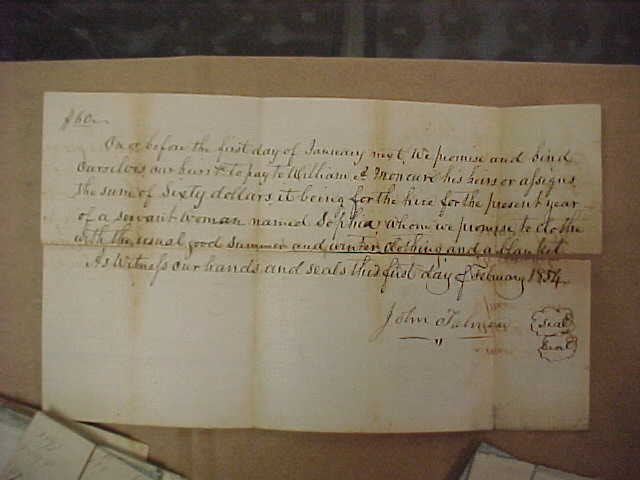 $60
On or before the first day of January next, We promise and bind
Ourselves our heirs &c to pay to William A Moncure his heirs or assigns
the sum of Sixty dollars, it being for the hire for the present year
of a servant woman named Sophia, whom we promise to clothe
with the usual good summer and winter clothing and a blanket
As Witness our hands and seals this first day of February 1854.
John
seal
seal